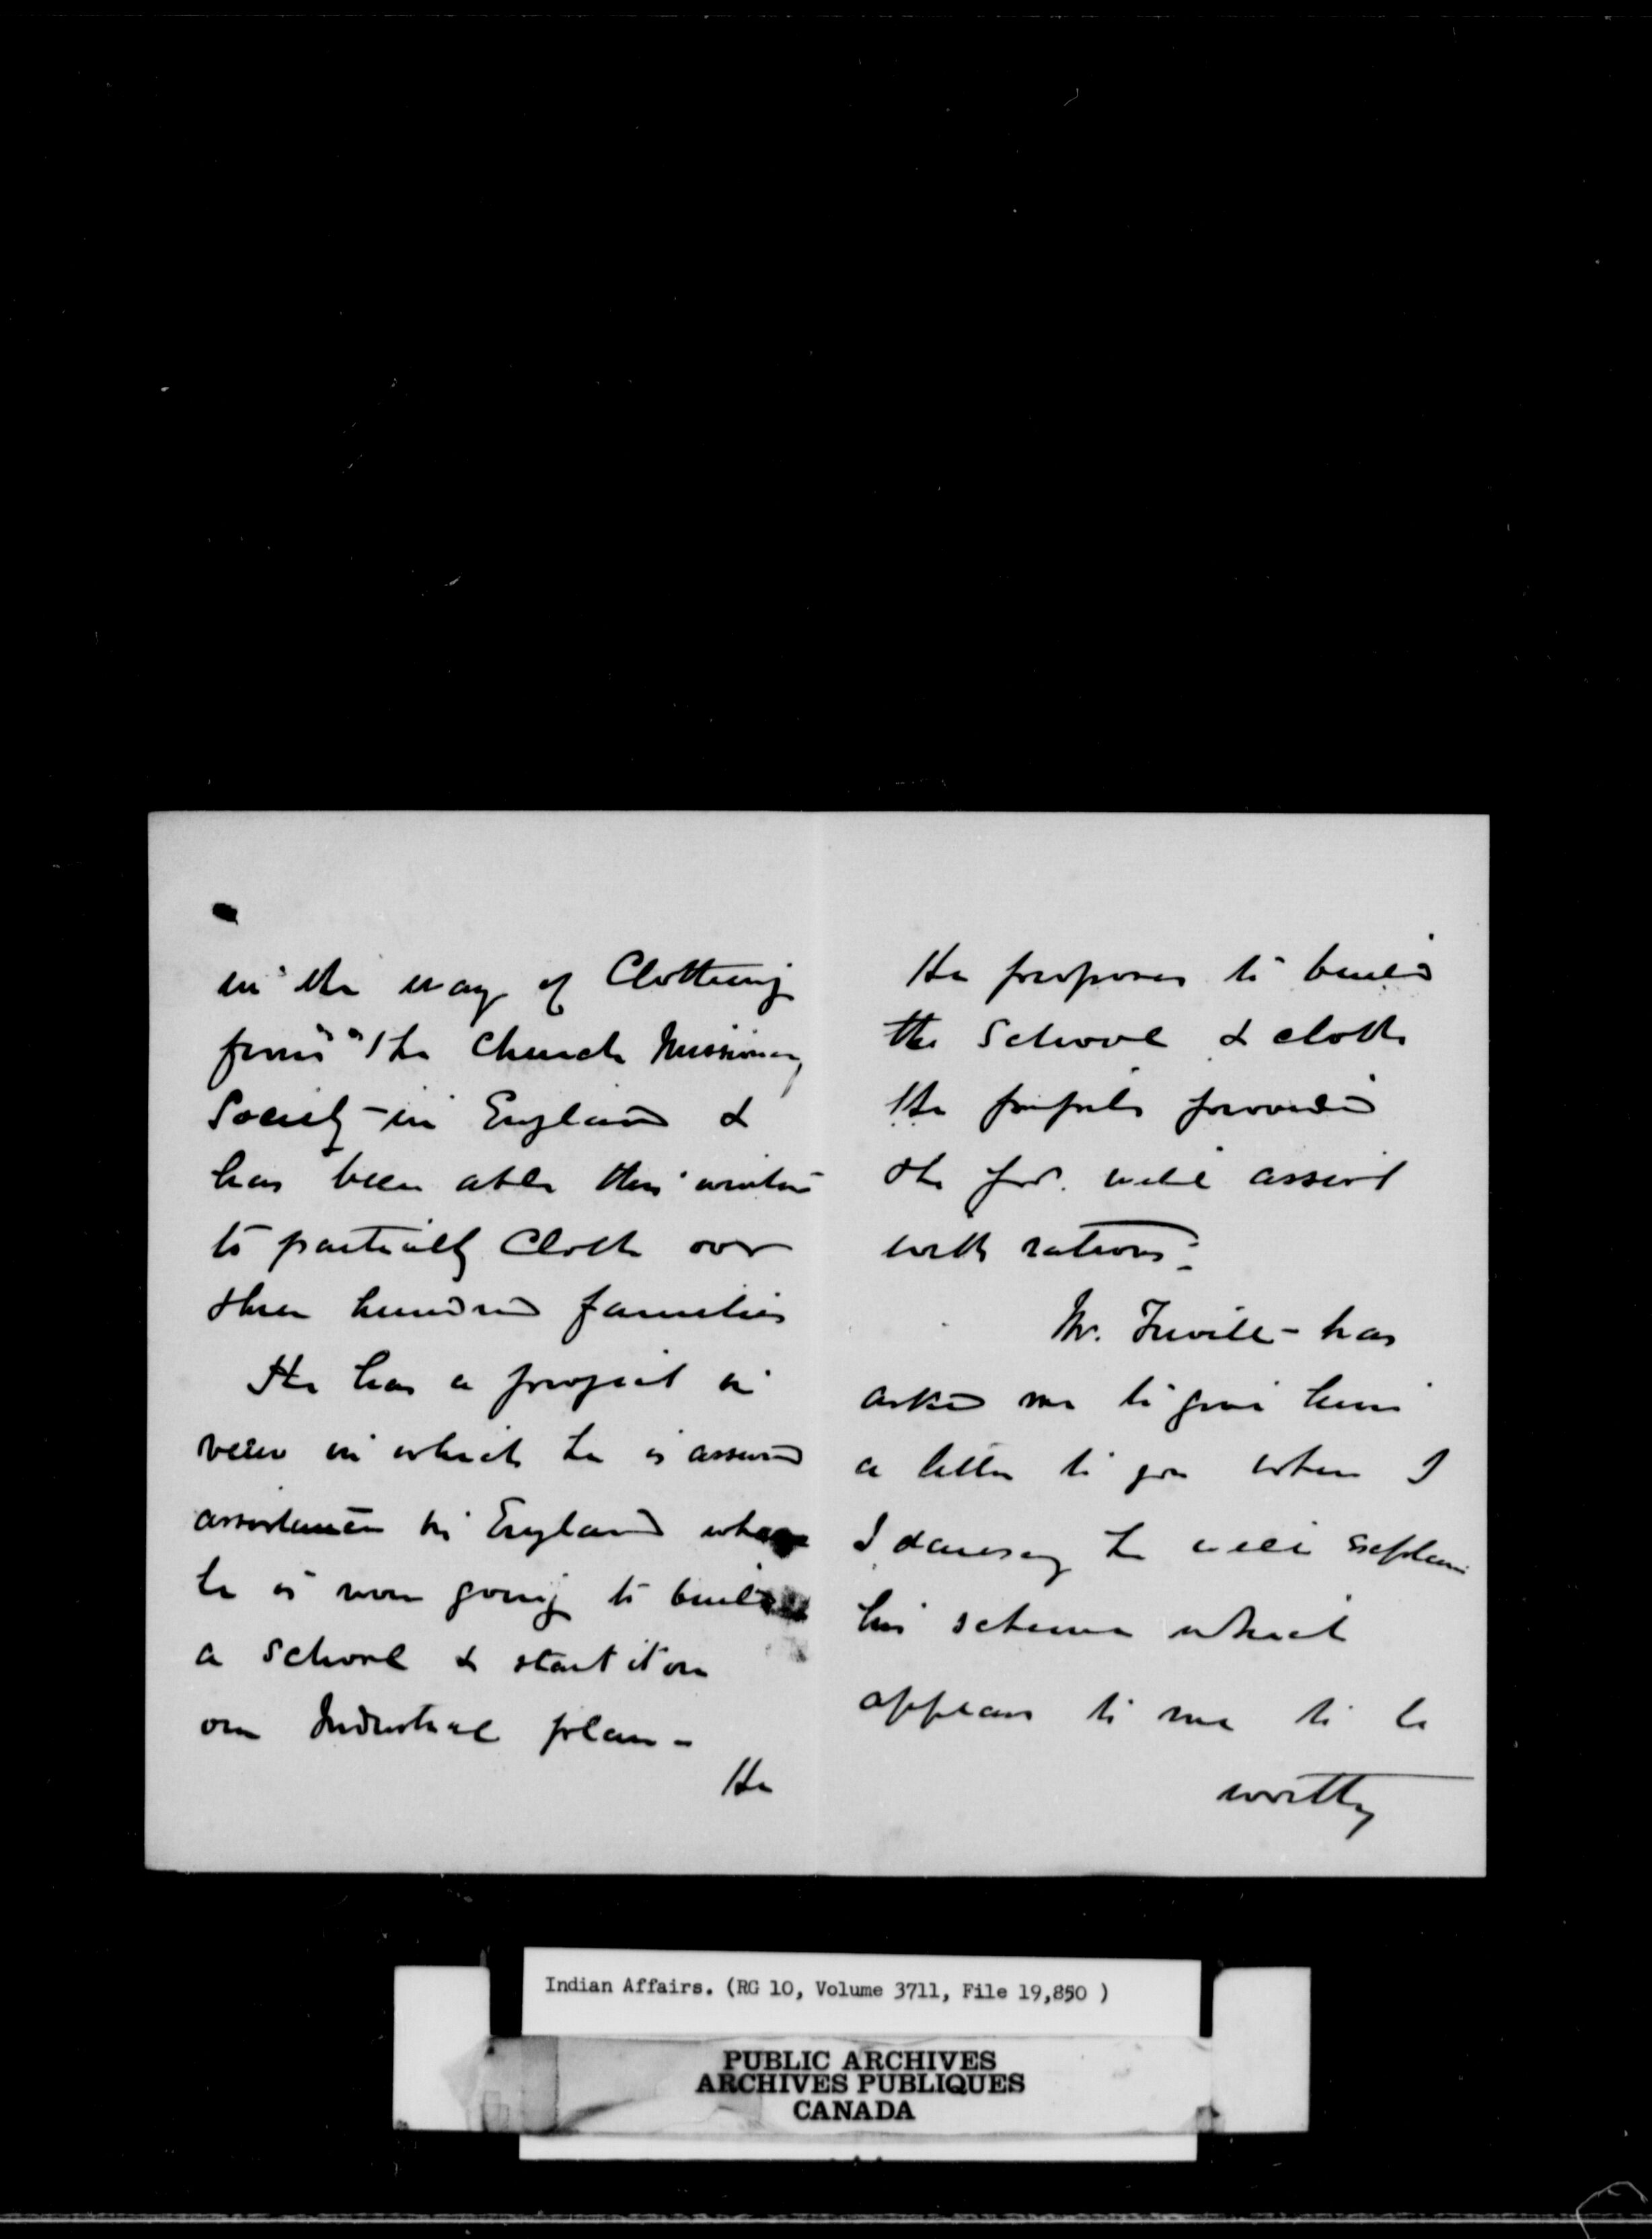 in the way of Clothing
from the Church Missionary
Society - in England &
has been able this winter
to partially Cloth over
three hundred families
He has a project in
view in which he is assured
assistance in England where
he is now going to build
a School & start it on
our Industrial plan -
He
He proposes to build
the School & cloth
the pupils provided
the Govt. will assist
with rations.
Mr. - has
asked me to give him
a letter to you when I
I daresay he will explain
his scheme which
appears to me to be
worthy
Indian Affairs. (RG 10, Volume 3711, File 19,850 )
PUBLIC ARCHIVES
ARCHIVES PUBLIQUES
CANADA